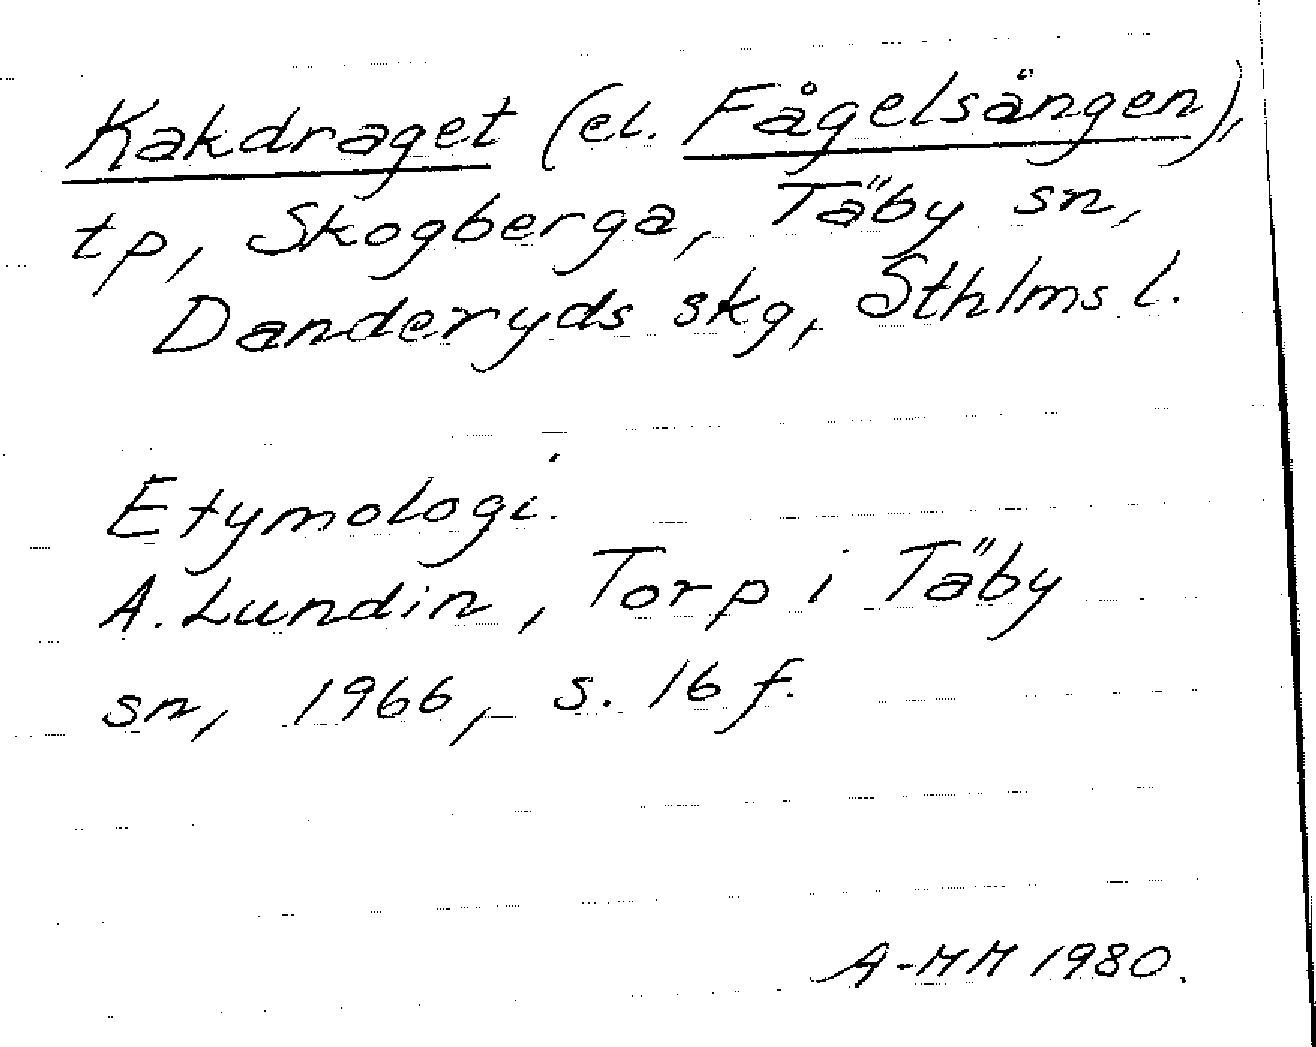 Kakdraget (el. Fågelsången),
tp, Skogberga, Täby sn,
Danderyds skg, Sthlms l.
Etymologi.
A. Lundin, Torp i Täby
sn, 1966, s. 16 f.
A-MM 1980.